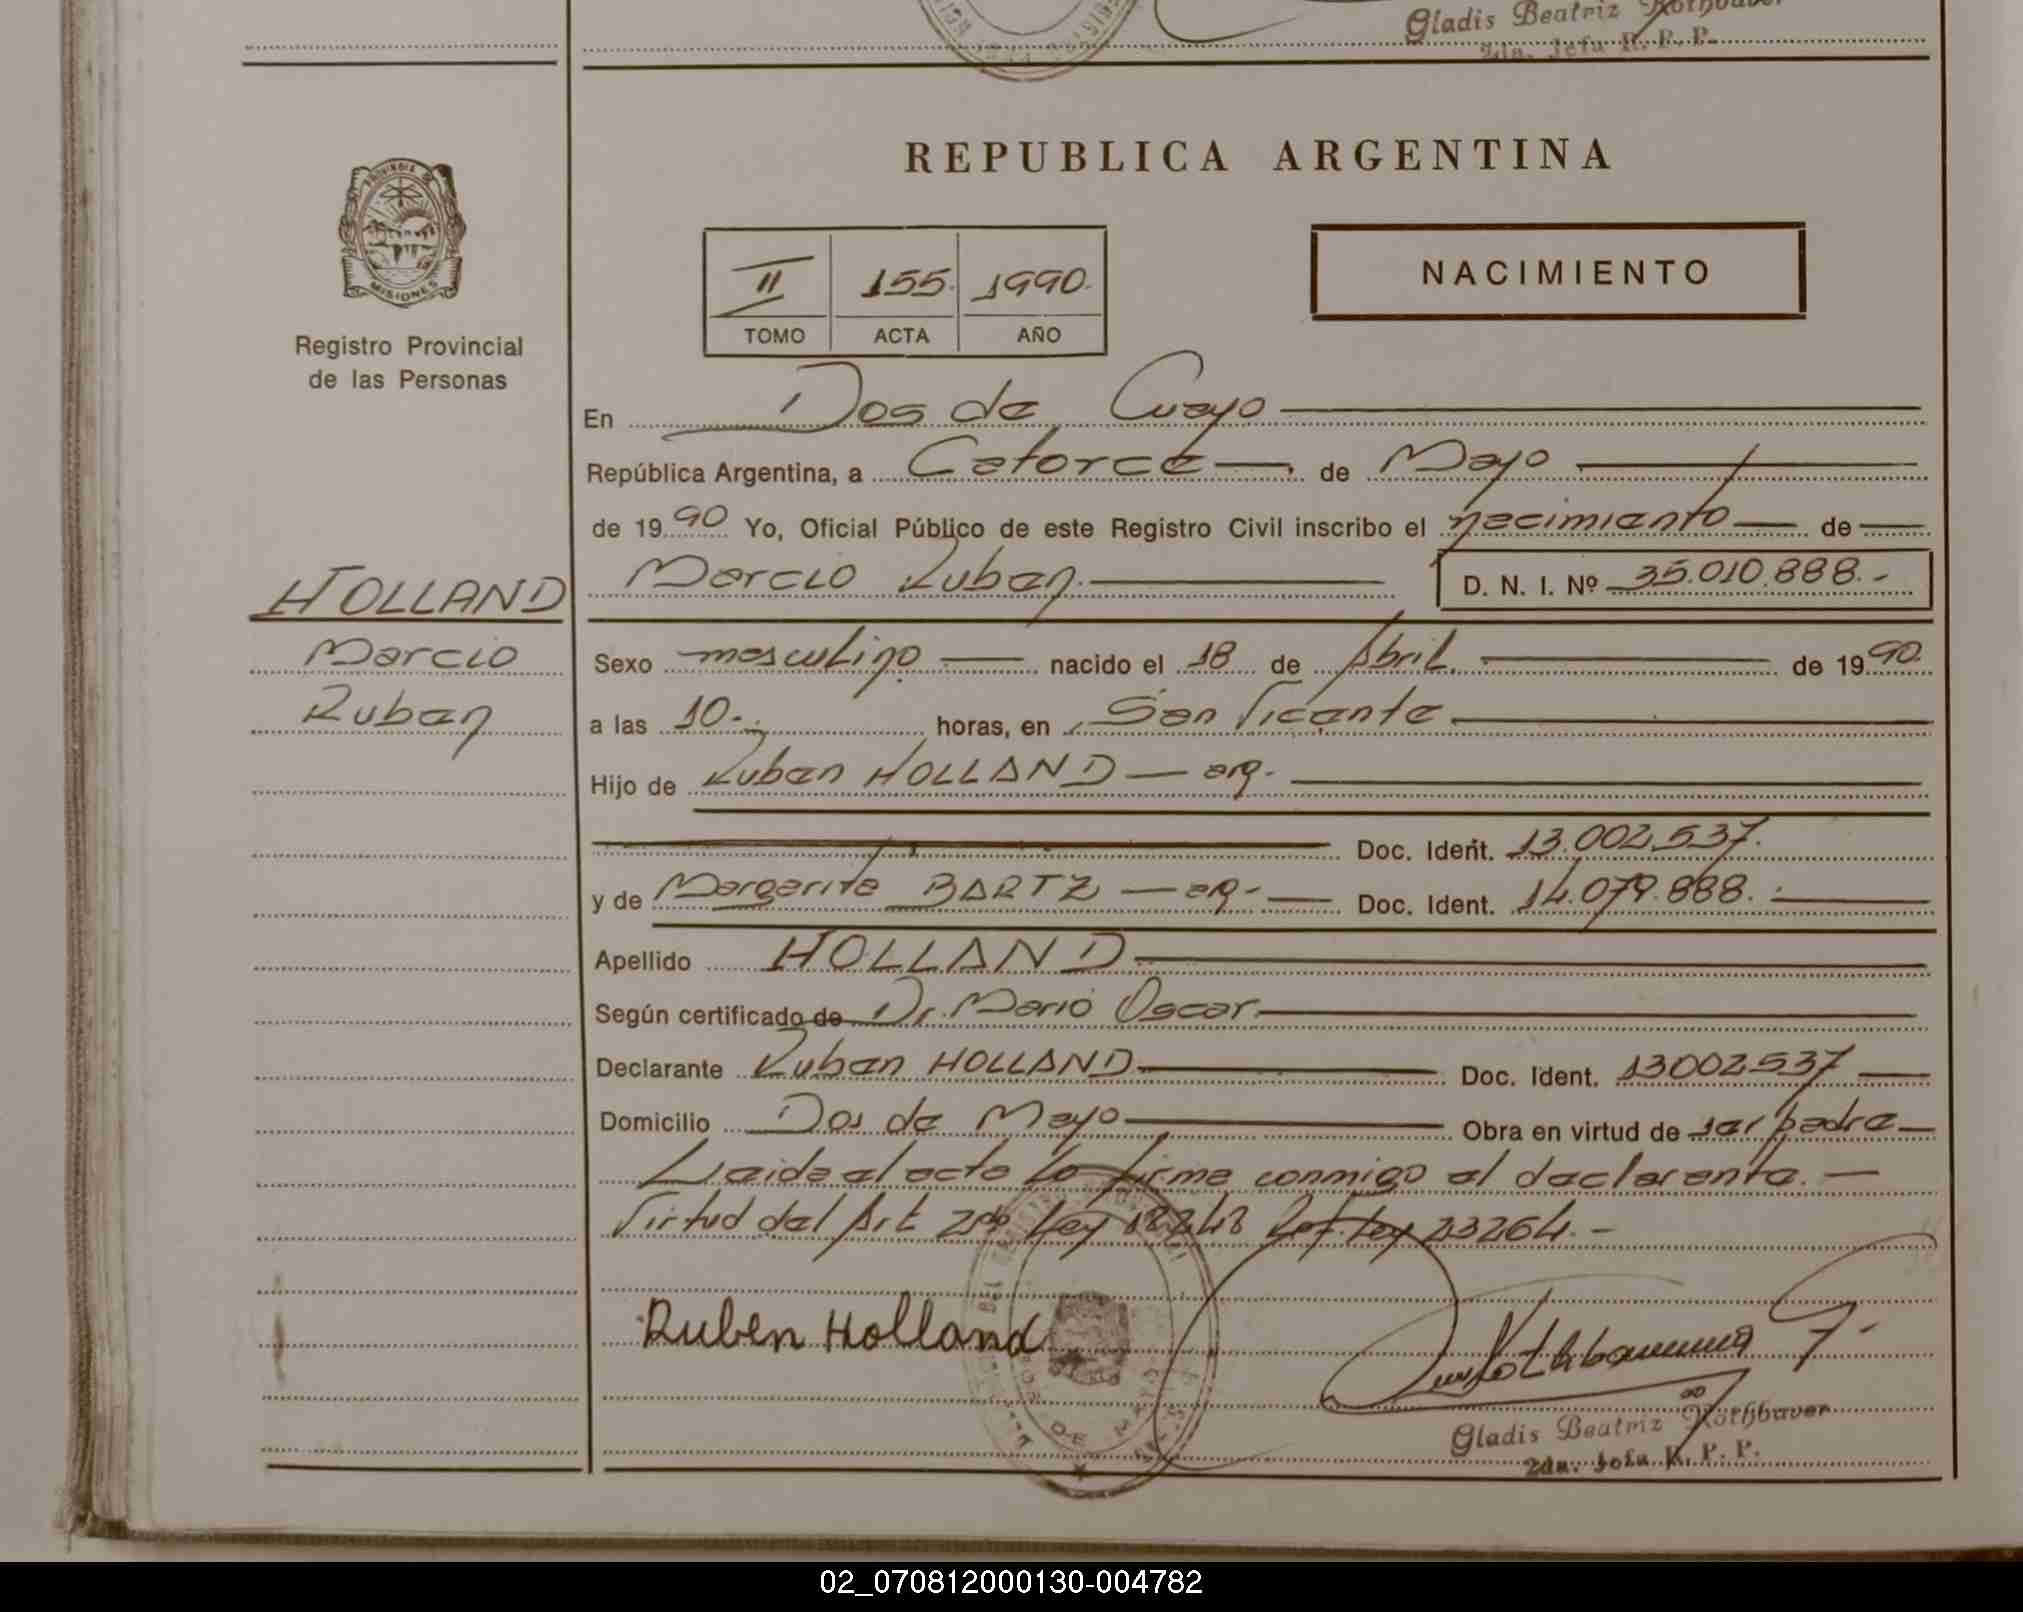 Gladis Beatriz Rothbauer
2da. Jefa R. P. P.
REPUBLICA ARGENTINA
PROVINCIA DE
MISIONES
Registro Provincial
de las Personas
II 155. 1990.
TOMO ACTA AÑO
NACIMIENTO
En Dos de Cuayo
República Argentina, a Catorce de Mayo
de 1990 Yo, Oficial Público de este Registro Civil inscribo el nacimiento de
Marcio Ruben. D. N. I. Nº 35.010.888.-
HOLLAND
Marcio
Ruben
Sexo masculino nacido el 18 de Abril. de 1990.
a las 10.- horas, en San Vicente
Hijo de Ruben HOLLAND - arg.
Doc. Ident. 13.002.537.
y de Margarita BARTZ - arg.- Doc. Ident. 14.079.888.
Apellido HOLLAND
Según certificado de Dr. Mario Oscar
Declarante Ruben HOLLAND Doc. Ident. 13002537
Domicilio Dos de Mayo Obra en virtud de ser padre
Leida el acta la firma conmigo el declarante.-
Virtud del Art 2do Ley 18248 Ref. Ley 23264.-
Ruben Holland
DOS DE MAYO
Gladis Beatriz Rothbauer
2da. Jefa R. P. P.
02_070812000130-004782